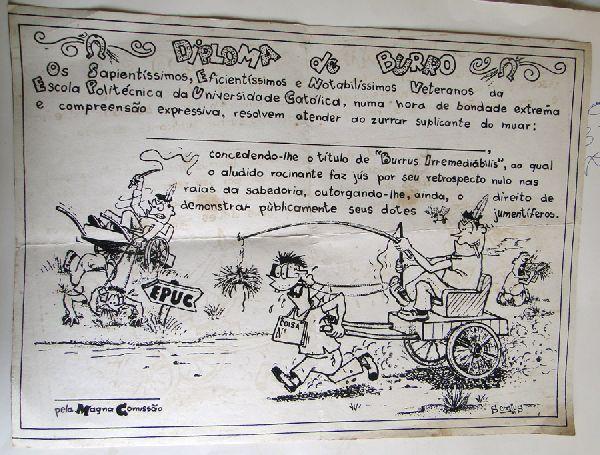 DIPLOMA do BURRO
Os Sapientíssimos, Eficientíssimos e Notabilíssimos Veteranos da
Escola Politécnica da Universidade Católica, numa hora de bondade extrema
e compreensão expressiva, resolvem atender ao zurrar suplicante do muar:
concedendo-lhe o título de "Burrus Irremediábilis", ao qual
o aludido rocinante faz jús por seu retrospecto nulo nas
raias da sabedoria, outorgando-lhe, ainda, o direito de
demonstrar públicamente seus dotes jumentíferos.
EPUC
COISA
pela Magna Comissão